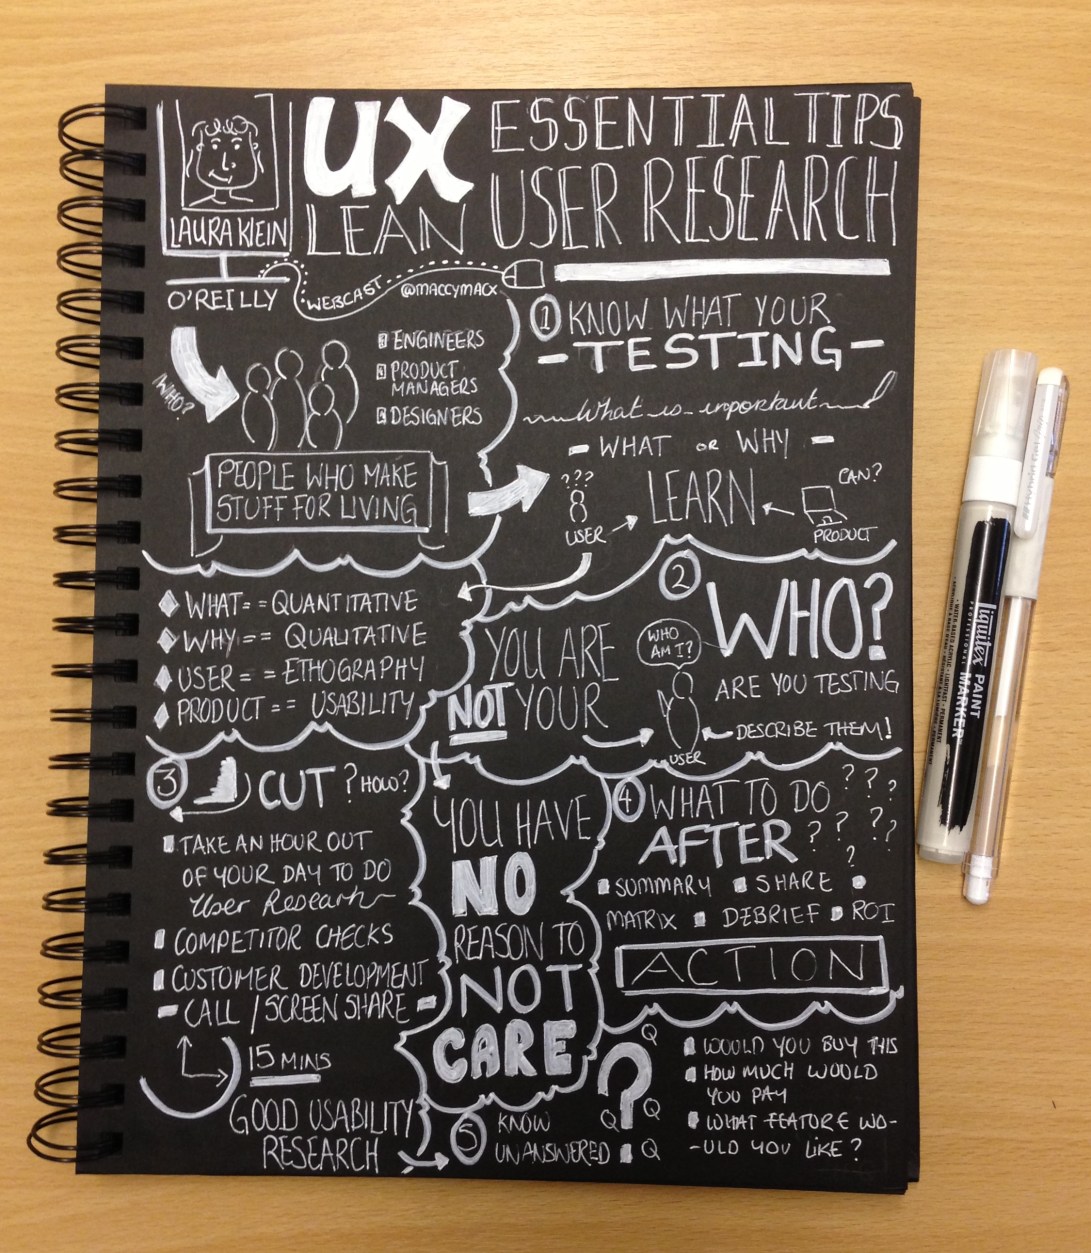 LAURA KLEIN
UX
LEAN
ESSENTIAL TIPS
USER RESEARCH
O'REILLY
WEBCAST
@MACCYMACX
WHO?
ENGINEERS
PRODUCT
MANAGERS
DESIGNERS
PEOPLE WHO MAKE
STUFF FOR LIVING
1 KNOW WHAT YOUR
- TESTING -
What is important
- WHAT OR WHY -
???
USER
LEARN
CAN?
PRODUCT
WHAT = = QUANTITATIVE
WHY = = QUALITATIVE
USER = = ETHOGRAPHY
PRODUCT = = USABILITY
YOU ARE
NOT YOUR
2
WHO?
WHO
AM I?
ARE YOU TESTING
DESCRIBE THEM!
USER
3 CUT ? HOW?
TAKE AN HOUR OUT
OF YOUR DAY TO DO
User Research
COMPETITOR CHECKS
CUSTOMER DEVELOPMENT
- CALL / SCREEN SHARE -
15 MINS
GOOD USABILITY
RESEARCH
YOU HAVE
NO
REASON TO
NOT
CARE
4 WHAT TO DO ? ? ?
AFTER ? ? ? ?
?
SUMMARY SHARE
MATRIX DEBRIEF ROI
ACTION
5 KNOW
UNANSWERED
Q
?
Q Q
Q
WOULD YOU BUY THIS
HOW MUCH WOULD
YOU PAY
WHAT FEATURE WO-
-ULD YOU LIKE?
Liquitex PAINT
PROFESSIONAL MARKER